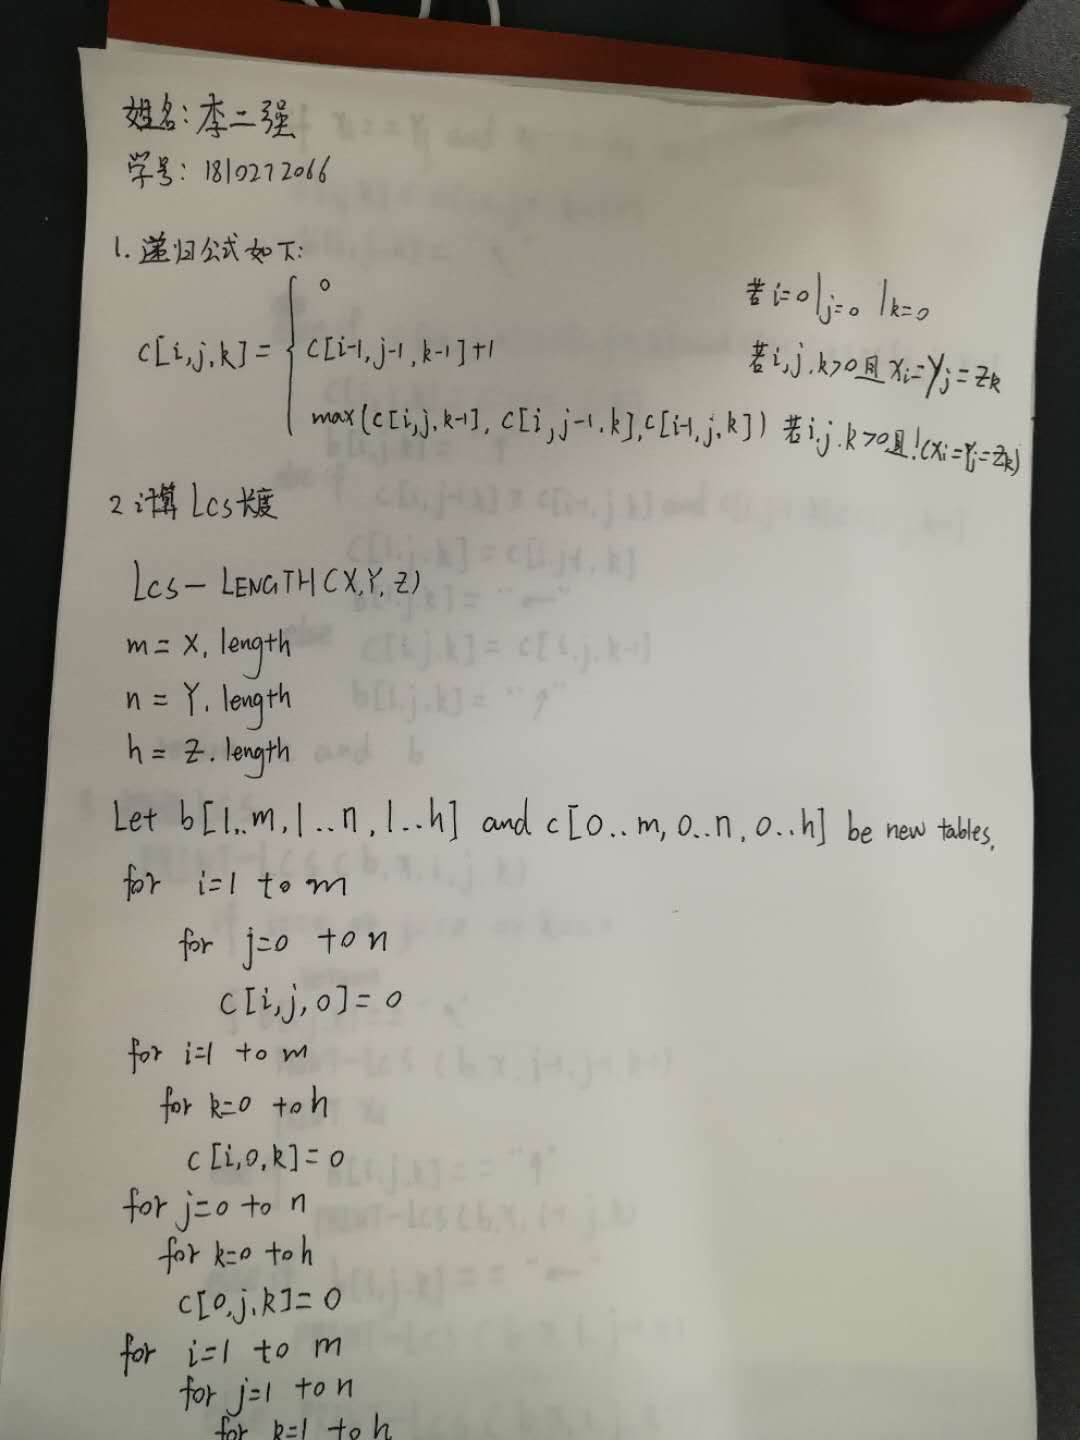 姓名: 李二强
学号: 1810272066
1. 递归公式如下:
0 若 i=0 | j=0 | k=0
c[i,j,k] = { c[i-1,j-1,k-1]+1 若 i,j,k>0且 xi=Yj=Zk
max(c[i,j,k-1], c[i,j-1,k],c[i-1,j,k]) 若 i.j.k>0且!(xi=Yj=Zk)
2 计算 LCS长度
LCS-LENGTH(X,Y,Z)
m = X. length
n = Y. length
h = Z. length
Let b[1..m,1..n,1..h] and c[0..m,0..n,0..h] be new tables.
for i=1 to m
for j=0 to n
c[i,j,0]=0
for i=1 to m
for k=0 to h
c[i,0,k]=0
for j=0 to n
for k=0 to h
c[0,j,k]=0
for i=1 to m
for j=1 to n
for k=1 to h